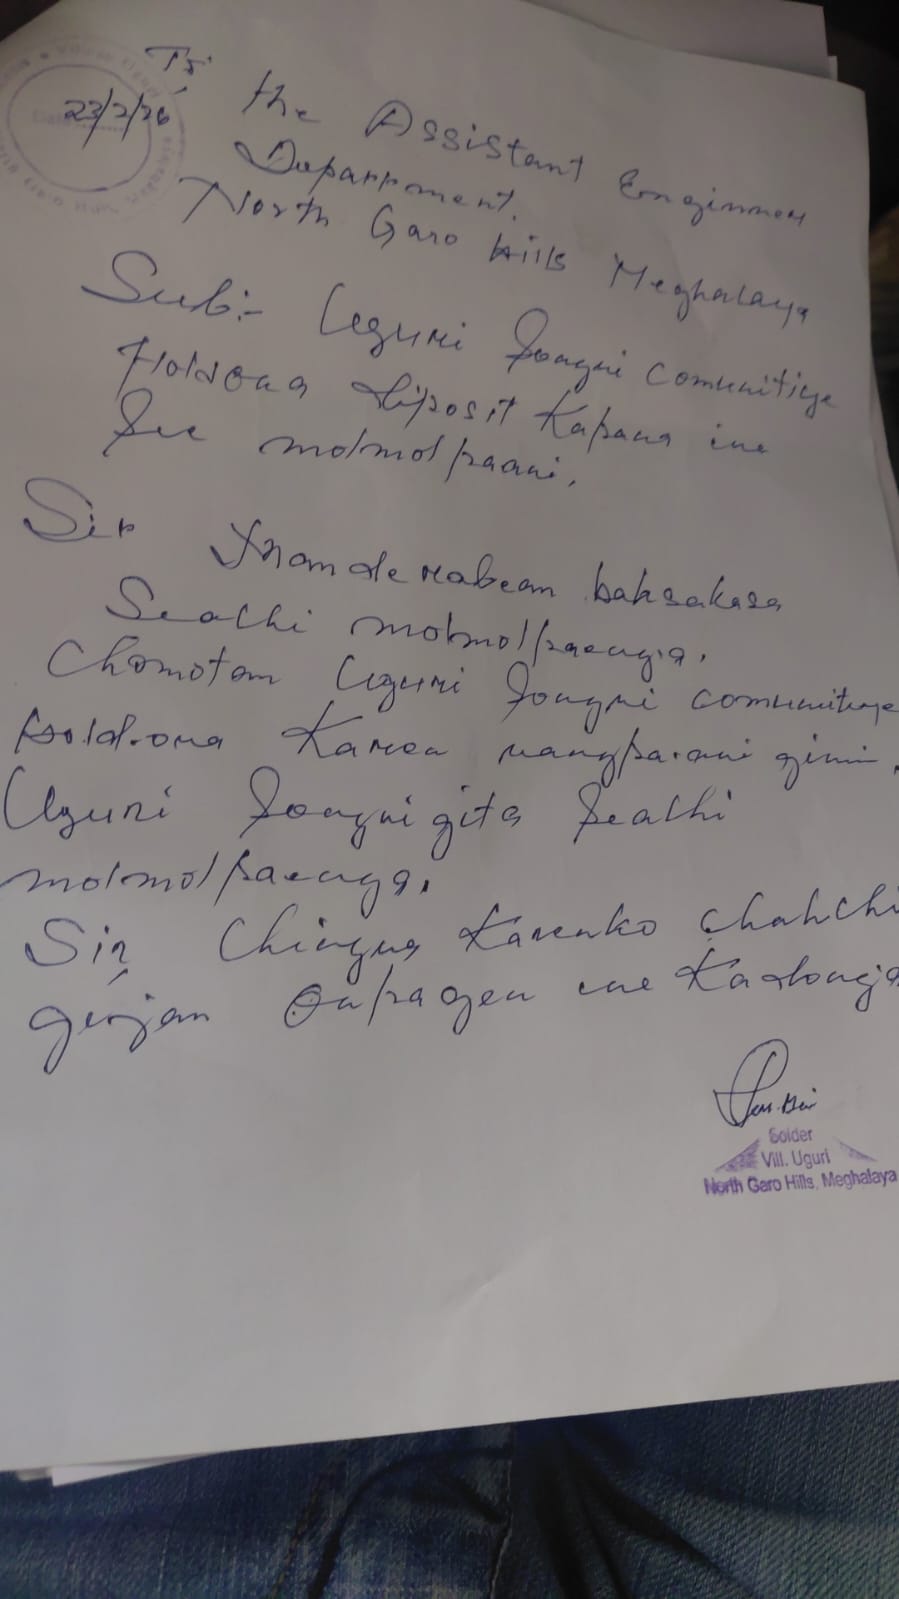 To,
23/2/26
the Assistant Enginner
Department.
North Garo Hills Meghalaya
Sub:- Uguri Songni comunitiye
Holdona diposit Kapana ine
See molmolpaani.
Sir Inamde nabean baksakasa
Sealhi molmolpaenga.
Chomotan Uguri Songni comunitiye
holdona Karen nangpa.ani gimin.
Uguri Songni gita Sealhi
molmolpaenga.
Sir, Chingna Karenko chahchi
ginjan onpagen ine Kadonga
Solder
Vill. Uguri
North Garo Hills, Meghalaya